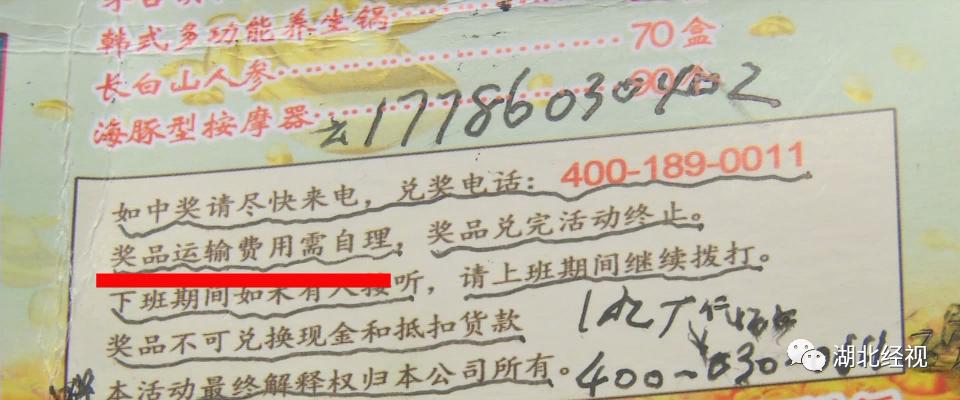 韩式多功能养生锅……………………70盒
长白山人参……………………
海豚型按摩器
17786030402
如中奖请尽快来电，兑奖电话：400-189-0011
奖品运输费用需自理，奖品兑完活动终止。
下班期间如果有人接听，请上班期间继续拨打。
奖品不可兑换现金和抵扣货款
本活动最终解释权归本公司所有。
400-830-
湖北经视